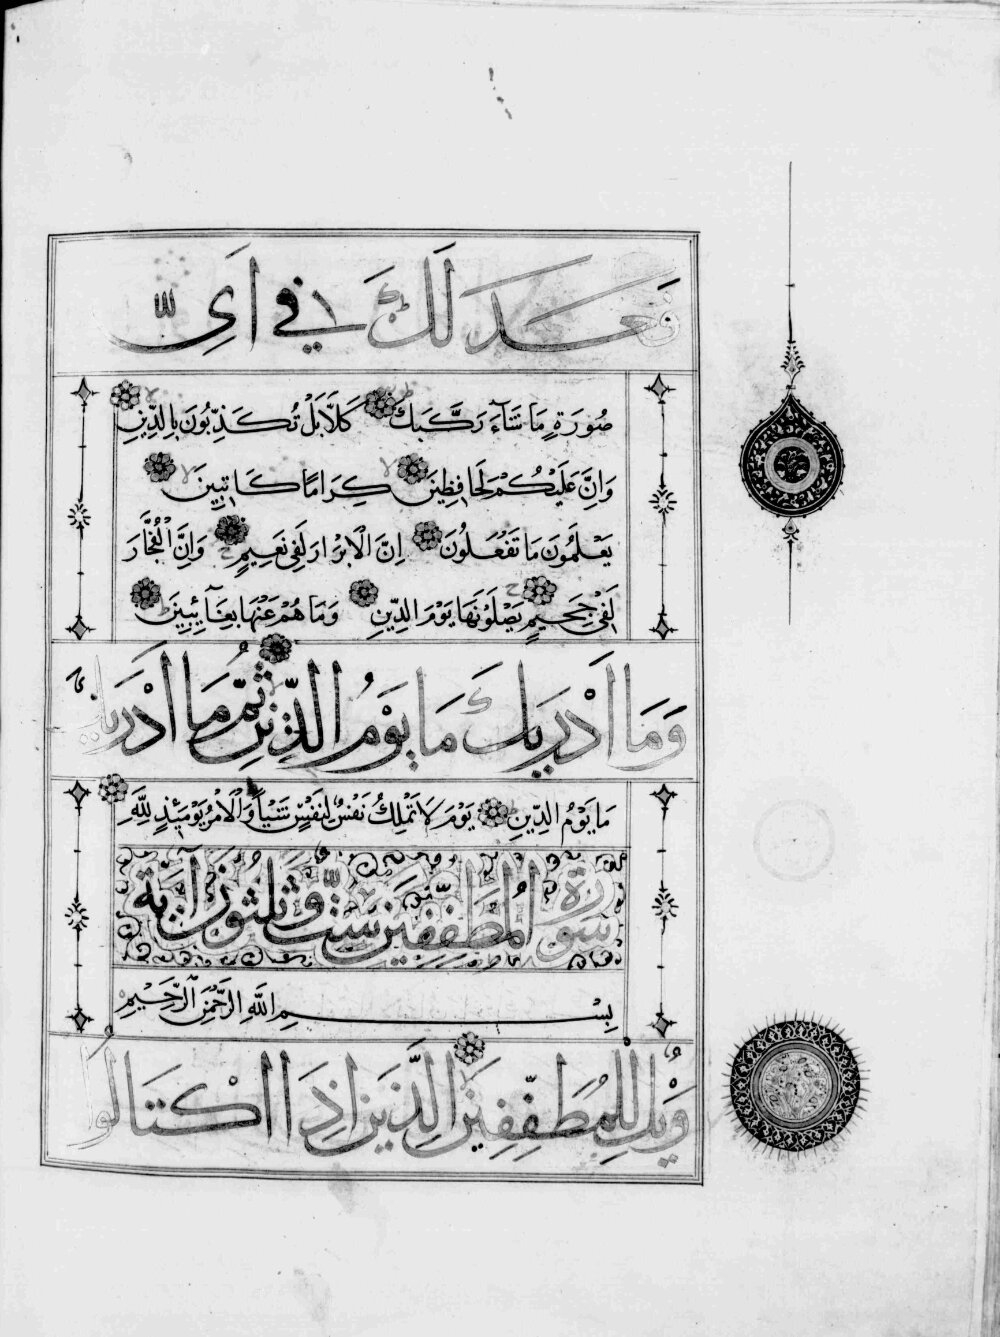 فَعَدَلَكَ فِي اَيِّ
صُورَةٍ مَا شَآءَ رَكَّبَكَ كَلَّا بَلْ تُكَذِّبُونَ بِالدِّينِ
وَاِنَّ عَلَيْكُمْ لَحَافِظِينَ كِرَامًا كَاتِبِينَ
يَعْلَمُونَ مَا تَفْعَلُونَ اِنَّ الْاَبْرَارَ لَفِي نَعِيمٍ وَاِنَّ الْفُجَّارَ
لَفِي جَحِيمٍ يَصْلَوْنَهَا يَوْمَ الدِّينِ وَمَا هُمْ عَنْهَا بِغَآئِبِينَ
وَمَا اَدْرٰيكَ مَا يَوْمُ الدِّينِ ثُمَّ مَا اَدْرٰيكَ
مَا يَوْمُ الدِّينِ يَوْمَ لَا تَمْلِكُ نَفْسٌ لِنَفْسٍ شَيْئًا وَالْاَمْرُ يَوْمَئِذٍ لِلَّهِ
سورة المُطَفِّفِينَ ستّ وثلثون آية
بِسْمِ اللَّهِ الرَّحْمٰنِ الرَّحِيمِ
وَيْلٌ لِلْمُطَفِّفِينَ الَّذِينَ اِذَا اكْتَالُوا